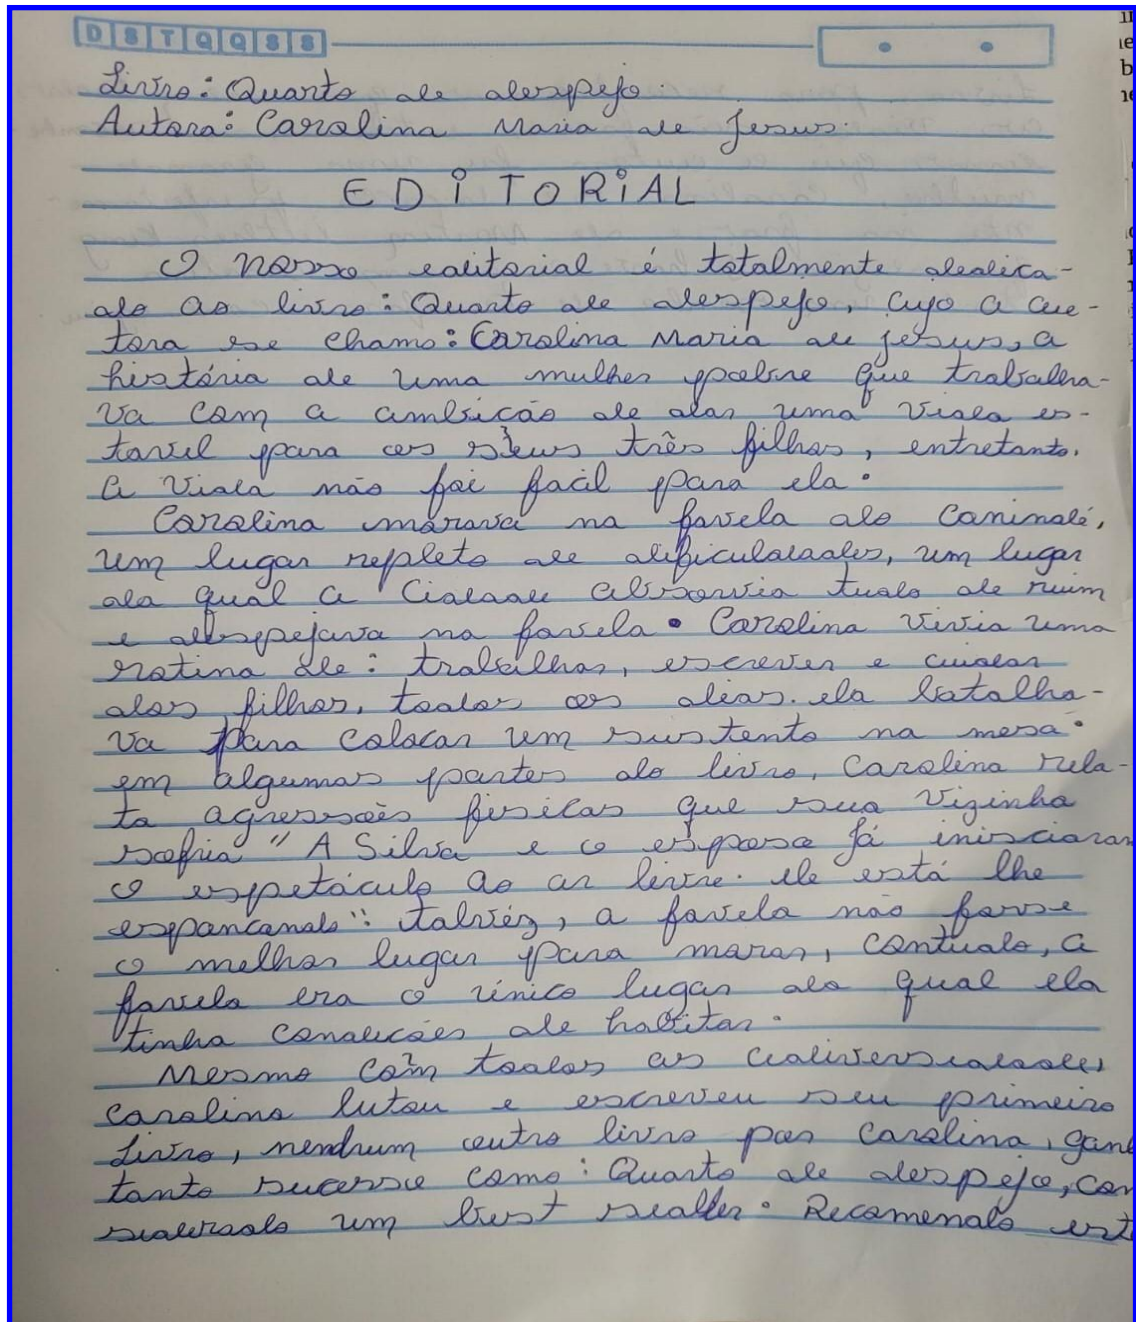 D S T Q Q S S
Livro: Quarto de despejo.
Autora: Carolina Maria de Jesus.
EDITORIAL
O nosso editorial é totalmente dedica-
do ao livro: Quarto de despejo, cujo a au-
tora se chama: Carolina Maria de Jesus, a
história de uma mulher pobre que trabalha-
va com a ambicão de dar uma vida es-
tavel para os seus três filhos, entretanto.
a vida não foi facil para ela.
Carolina morava na favela do Canindé,
um lugar repleto de dificuldades, um lugar
da qual a cidade absorvia tudo de ruim
e despejava na favela. Carolina vivia uma
rotina de: trabalhar, escrever e cuidar
dos filhos, todos os dias. ela batalha-
va para colocar um sustento na mesa.
em algumas partes do livro, Carolina rela-
ta agressões fisicas que sua vizinha
sofria "A Silva e o esposo já inisciaram
o espetáculo ao ar livre. ele está lhe
espancando". talvéz, a favela não fosse
o melhor lugar para morar, contudo, a
favela era o único lugar do qual ela
tinha condicões de habitar.
Mesmo com todas as
carolina lutou e escreveu seu primeiro
Livro, nenhum outro livro por Carolina,
tanto sucesso como: Quarto de despejo,
um best sealler. Recomendo